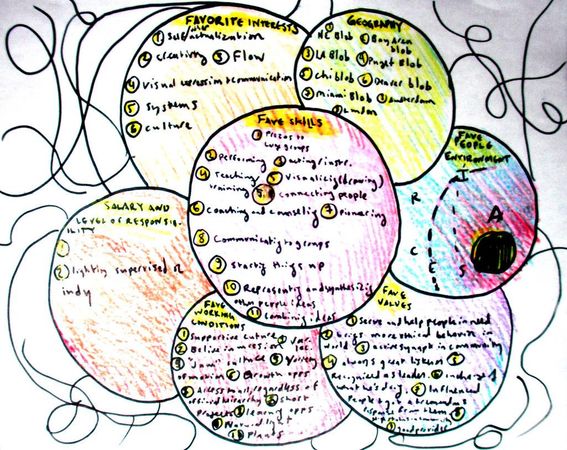 FAVORITE INTERESTS
① Self/other actualization
② Creativity ③ Flow
④ Visual expression + communication
⑤ Systems
⑥ Culture
GEOGRAPHY
① NE Blob ② Bay Area blob
③ LA Blob ④ Puget Blob
⑤ Chi blob ⑥ Denver blob
⑦ Miami Blob ⑧ Amsterdam
London
FAVE SKILLS
① Prezos to large groups
② Performing ③ acting/instr.
④ Teaching/training ⑤ Visualizing (drawing)
connecting people
⑥ Coaching and counseling ⑦ pioneering
⑧ Communicating to groups
⑨ Starting things up
⑩ Representing and synthesizing other people ideas
⑪ Combining ideas
FAVE PEOPLE ENVIRONMENT
R I A
C E S
SALARY AND LEVEL OF RESPONSIBILITY
①
② lightly supervised or indy
FAVE WORKING CONDITIONS
① Supportive culture ② Var.
Believe in mission loc
"Jam" culture Variety
of motion Growth opps
Access to all, regardless of
hierarchy Short
Projects Learning opps
Natural light
Plants
FAVE VALUES
① Serve and help people in need
② brings more ethical behavior to
world ③ in community
④ always great listener ⑤
Recognized as leader
⑦ Influenced
people + gain a tremendous
response from them ⑧
good provider